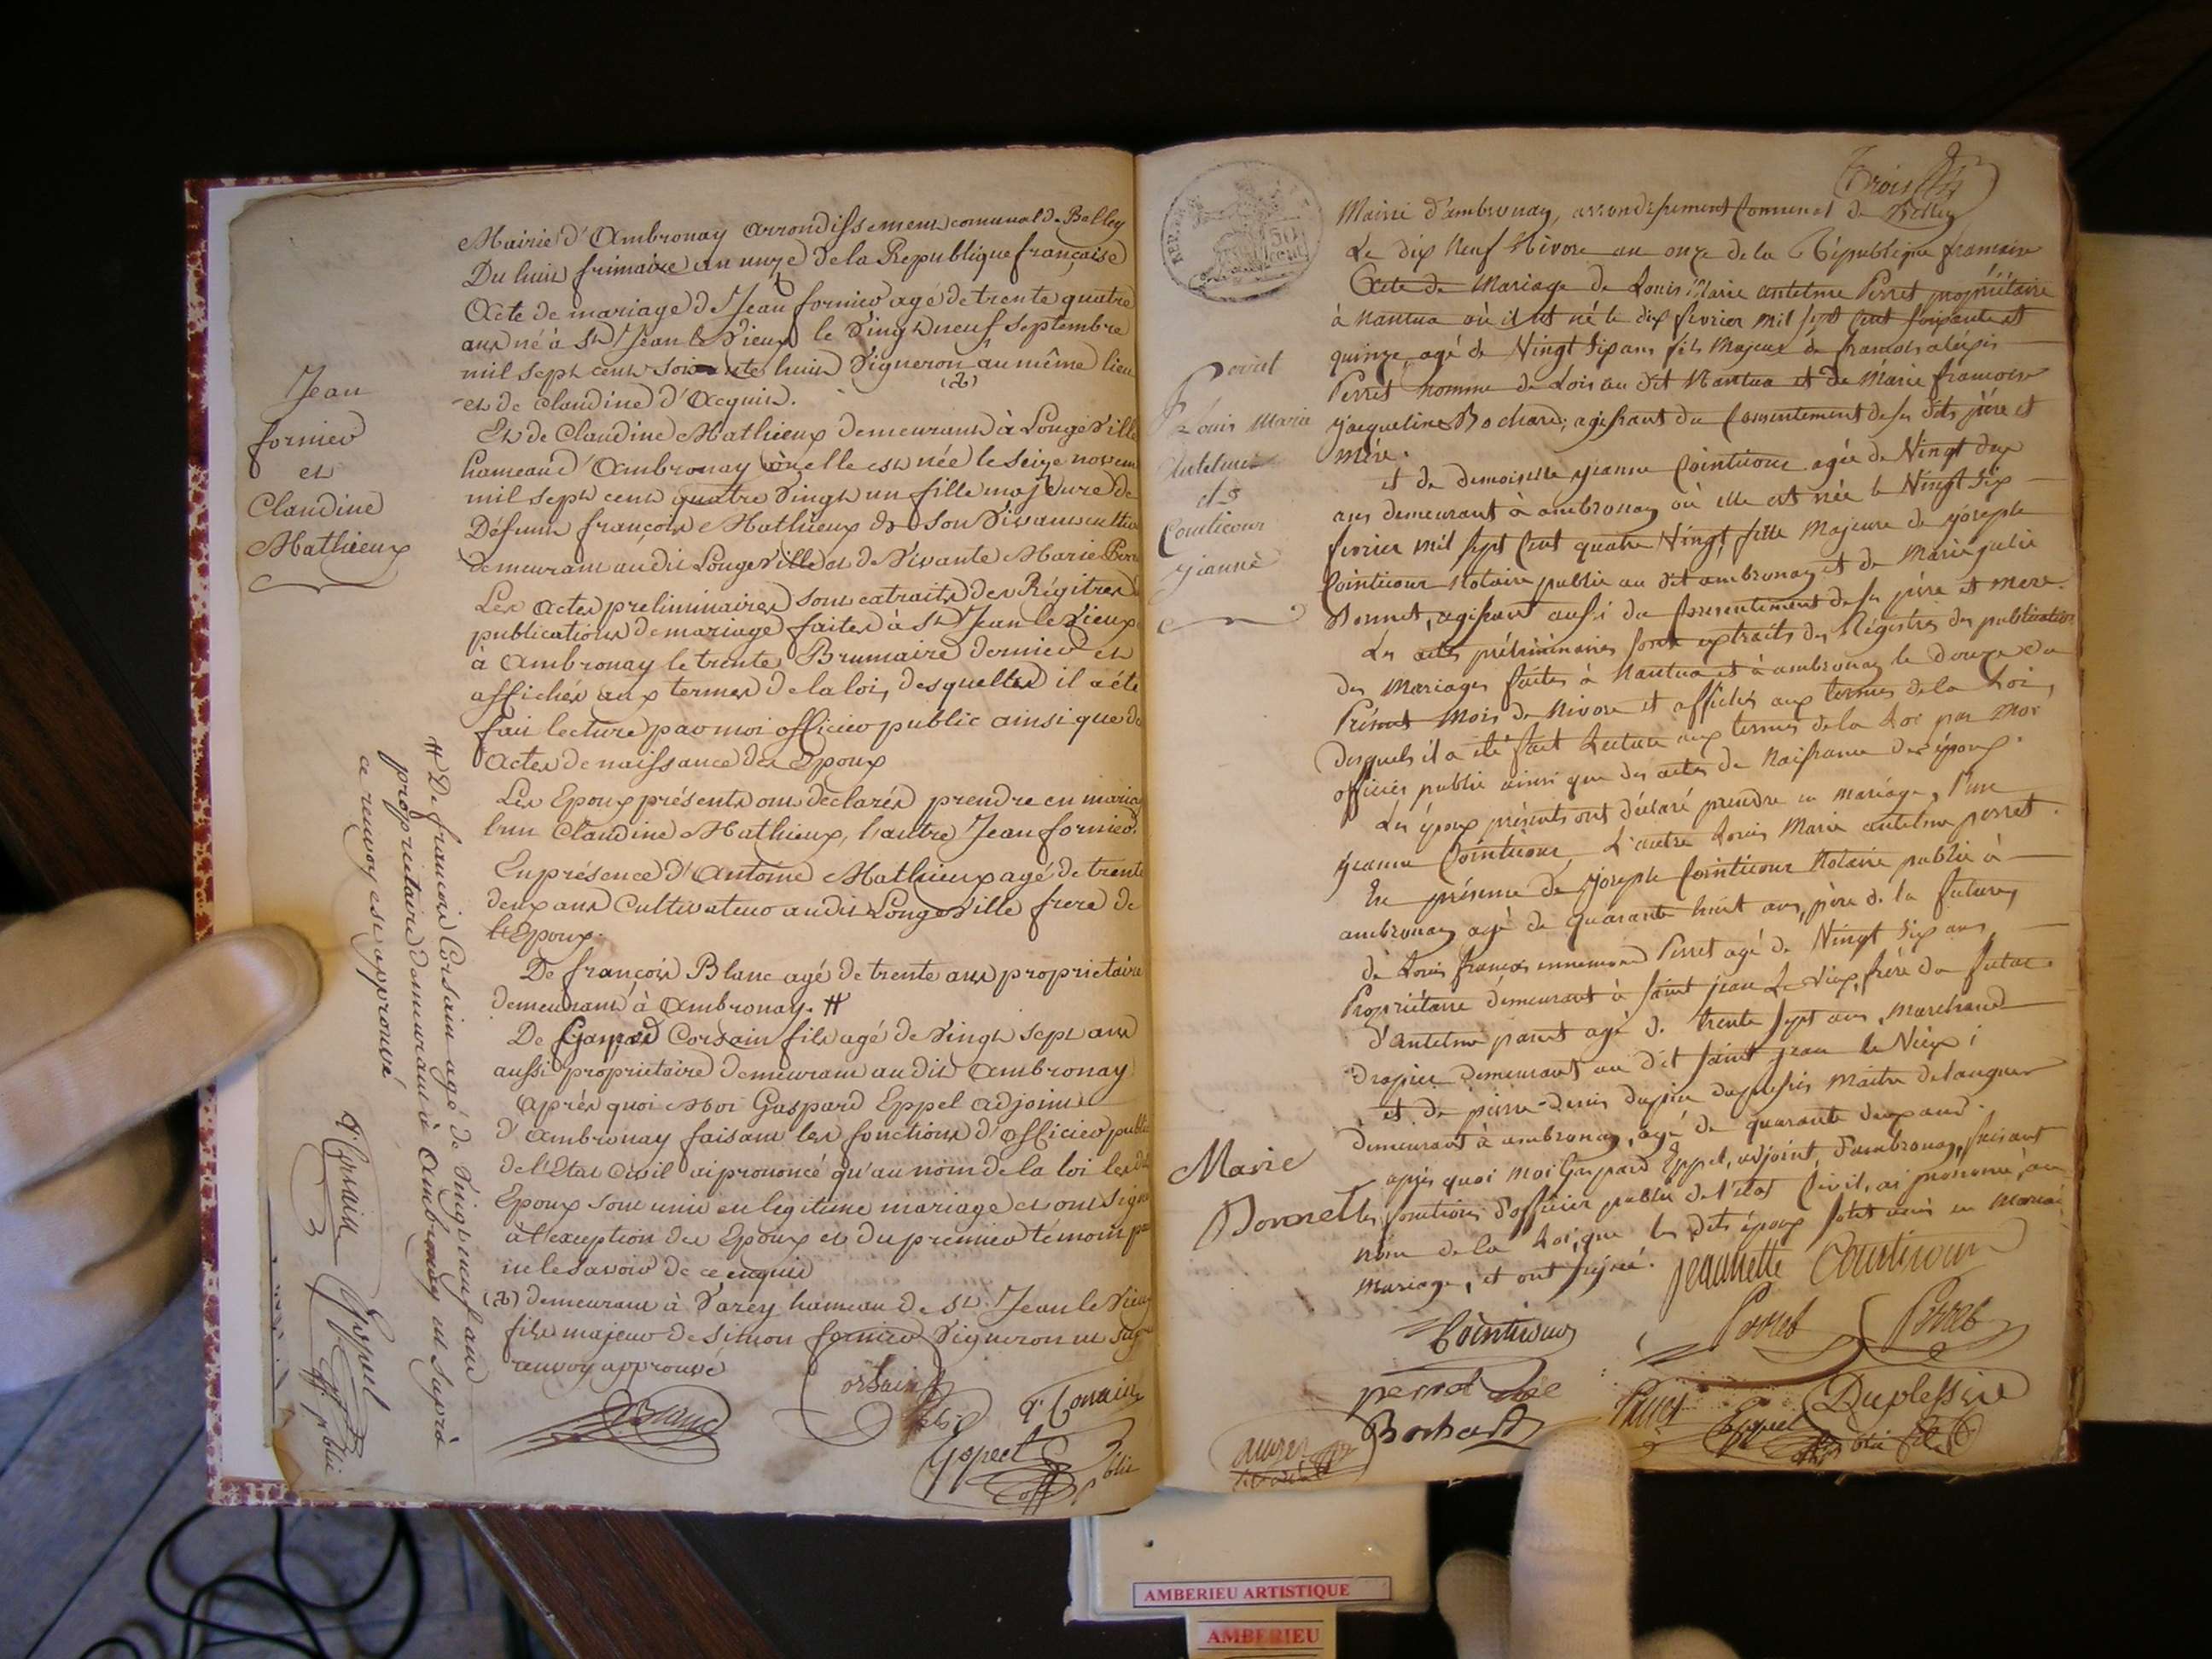 Jean
fornier
et
Claudine
Mathieux
Mairie d'Ambronay arrondissement comunal de Belley
Du huit frimaire an onze de la Republique française
Acte de mariage de Jean fornier agé de trente quatre
ans né à St Jean le Vieux le Vingt neuf Septembre
mil sept cent soixante huit Vigneron au même lieu
(a)
et de Claudine d'Acquin.
Et de Claudine Mathieux demeurant à Longeville
hameau d'Ambronay où elle est née le Seize novem
mil sept cent quatre Vingt un fille majeure de
Défunt françois Mathieux de son Vivant cultiv
demeurant audit Longeville et de Vivante Marie
Les Actes preliminaires sont extraits des Régitres
publications de mariage faites à St Jean le Vieux
à Ambronay le trente Brumaire dernier et
affichés aux termes de la loi, desquelles il a été
fait lecture par moi officier public ainsi que de
Actes de naissance des Epoux
Les Epoux présents ont déclarés prendre en mariag
l'un Claudine Mathieux, l'autre Jean fornier.
En présence d'Antoine Mathieux agé de trente
deux ans Cultivateur audit Longeville frere de
l'Epoux.
De françois Blanc agé de trente ans proprietaire
demeurant à Ambronay. #
De Gaspard Corsain fils agé de Vingt Sept ans
aussi proprietaire demeurant audit Ambronay
Après quoi Moi Gaspard Eppel adjoint
d'Ambronay faisant les fonctions d'officier public
de l'Etat Civil ai prononcé qu'au nom de la loi les dit
Epoux sont unis en legitime mariage et ont Signé
à l'exception des Epoux et du premier témoin po
ne le savoir de ce enquis
(a) demeurant à Varey hameau de St. Jean le Vieux
fils majeur de Simon fornier Vigneron
renvoy approuvé
Corsain fils
Eppel
# De francois Corsain agé de Vingt neuf ans
proprietaire demeurant à Ambronay et Saprà
ce renvoy est approuvé
Trois
Mairie d'ambronay, arrondissement Communal de Belley
Le dix Neuf Nivose an onze de la République francaise
Acte de Mariage de Louis Marie antelme Perret propriétaire
à Nantua où il est né le dix fevrier mil sept Cent soixante et
quinze, agé de Vingt Sept ans fils Majeur de francois
Perret homme de Lois au dit Nantua et de Marie francoise
jacqueline Bochard; agissant du Consentement de ses dits père et
mère.
et de demoiselle jeanne Cointicour agée de Vingt deux
ans demeurant à ambronay où elle est née le Vingt Six
fevrier mil sept Cent quatre Vingt, fille Majeure de joseph
Cointicour Notaire public au dit ambronay et de Marie julie
Donnet, agissant aussi du Consentement de ses père et mere.
Les actes préliminaires sont extraits des Régistres des publications
des Mariages faites à Nantua et à ambronay le douze du
Présent Mois de Nivose et affichés aux termes de la Loi,
desquels il a été fait Lecture aux termes de la Loi par Moi
officier public ainsi que des actes de Naissance des époux.
Les époux présents ont déclaré prendre en mariage, l'une
jeanne Cointicour, L'autre Louis Marie antelme perret.
En présence de joseph Cointicour Notaire public à
ambronay agé de quarante huit ans, père de la future,
de Louis francois ennemond Perret agé de Vingt Six ans
Propriétaire demeurant à saint jean Le Vieux, frère du futur.
d'antelme parent agé de trente sept ans, Marchand
drapier demeurant au dit saint jean le Vieux;
et de pierre denis duplessis Maitre de langues
demeurant à ambronay, agé de quarante deux ans.
après quoi Moi Gaspard Eppel, adjoint d'ambronay, faisant
les fonctions d'officier public de l'état Civil, ai prononcé, au
nom de la Loi, que les dits époux sont unis en
Mariage, et ont signé.
Louis Marie
Antelme
et
Cointicour
jeanne
Marie
Donnet
jeannette Cointicour
Cointicour
Perret
Perret
perret
Bochard
Eppel
Duplessis
AMBERIEU ARTISTIQUE
AMBERIEU